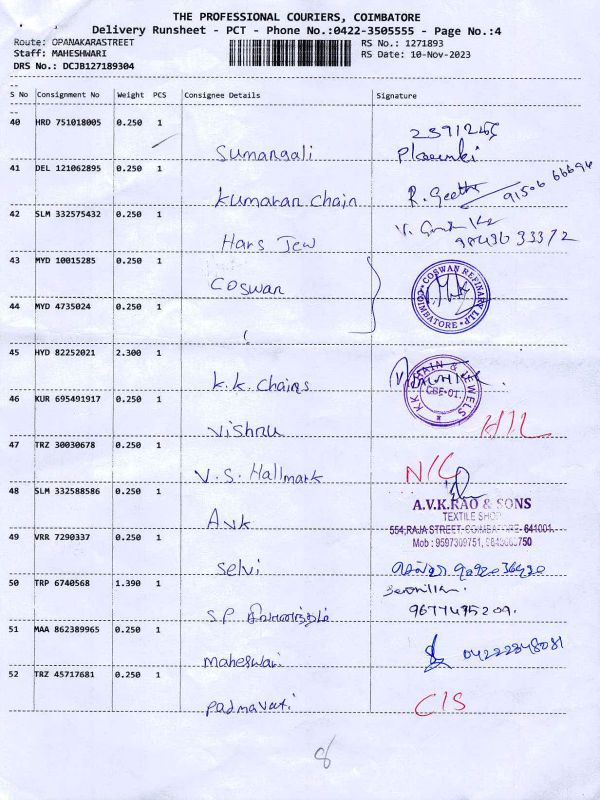 THE PROFESSIONAL COURIERS, COIMBATORE
Delivery Runsheet - PCT - Phone No.:0422-3505555 - Page No.:4
Route: OPANAKARASTREET RS No.: 1271893
Staff: MAHESHWARI RS Date: 10-Nov-2023
DRS No.: DCJB127189304
--
S No Consignment No Weight PCS Consignee Details Signature
--
40 HRD 751018005 0.250 1
Sumangali
41 DEL 121062895 0.250 1
Kumaran Chain R. Geetha 91506 66696
42 SLM 332575432 0.250 1
Hars Jew 98436 33372
43 MYD 10015285 0.250 1
Coswan COSWAN REFINARY LLP COIMBATORE
44 MYD 4735024 0.250 1
45 HYD 82252021 2.300 1
K.K. Chains KK CHAIN & JEWELS CBE-01.
46 KUR 695491917 0.250 1
Vishnu
47 TRZ 30030678 0.250 1
V.S. Hallmark
48 SLM 332588586 0.250 1
Avk
A.V.K.RAO & SONS
TEXTILE SHOP
554,RAJA STREET, COIMBATORE- 641001.
Mob : 9597309751,
49 VRR 7290337 0.250 1
Selvi
50 TRP 6740568 1.390 1
S.P 9677495209.
51 MAA 862389965 0.250 1
Maheswari 04222348081
52 TRZ 45717681 0.250 1
Padmavati C/S
8